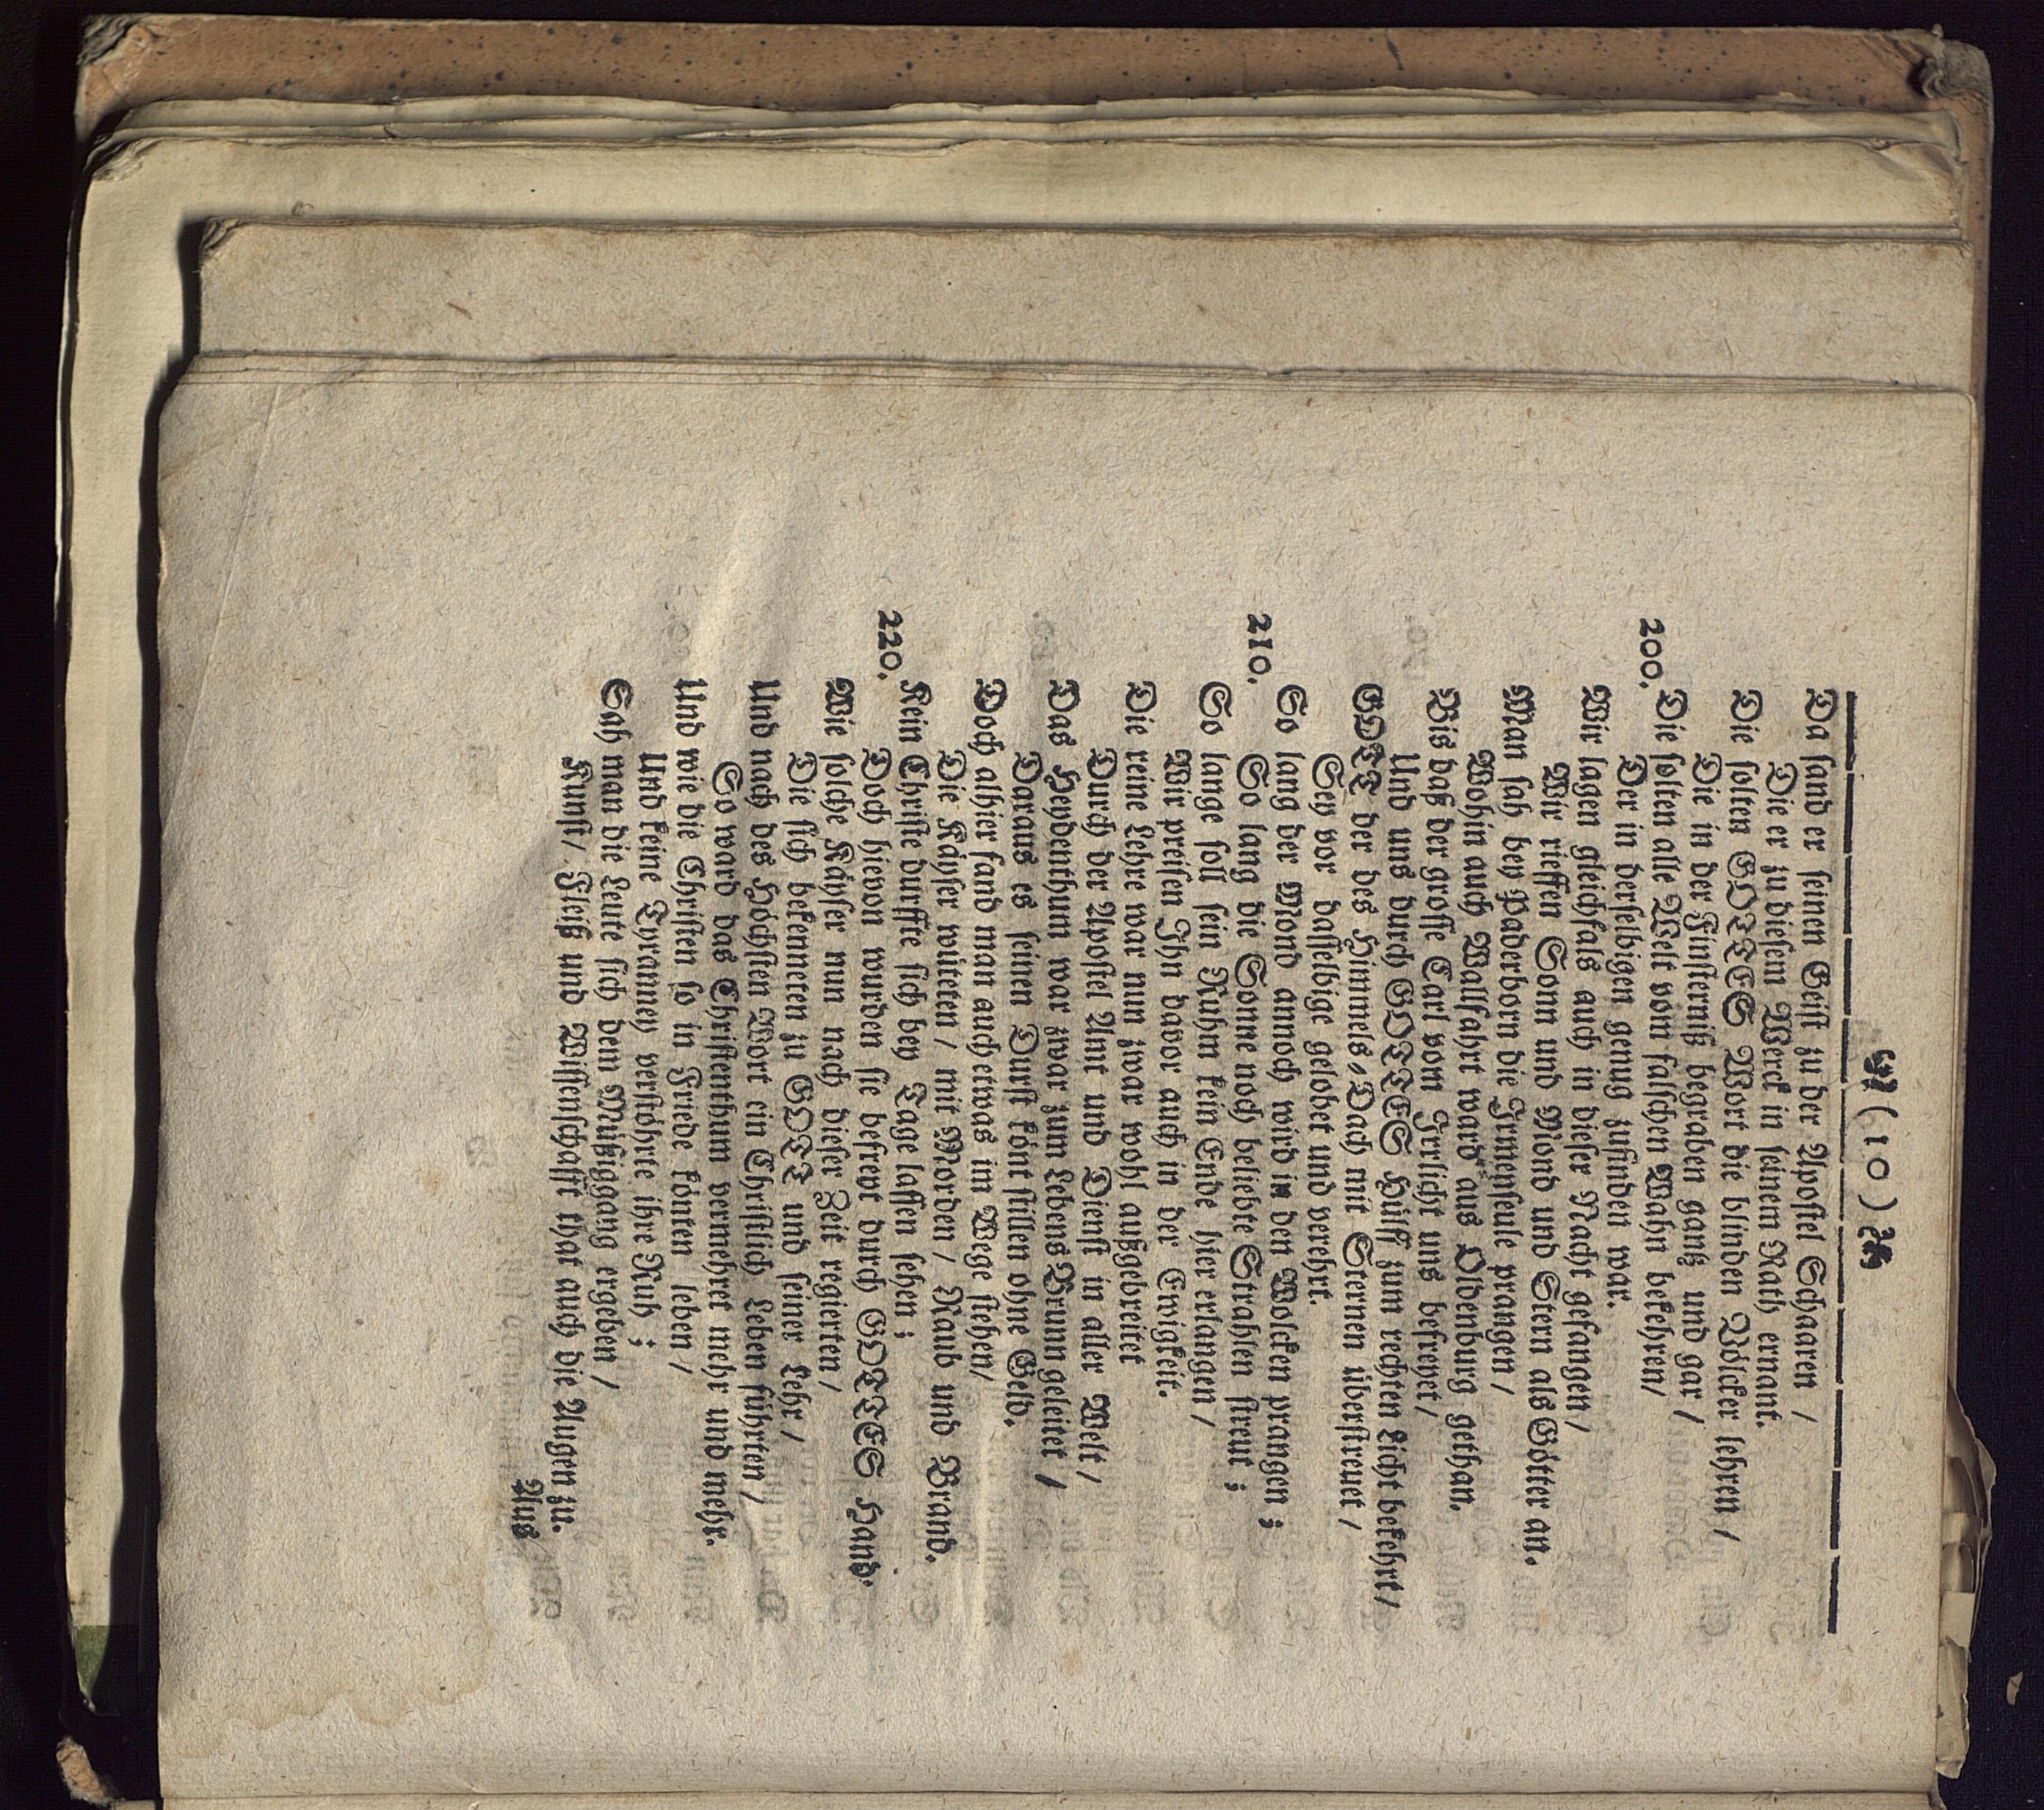 ( 10 )
Da sand er seinen Geist zu der Apostel Schaaren /
Die er zu diesem Werck in seinem Rath ernant.
Die solten GOTTES Wort die blinden Völcker lehren /
Die in der Finsternis begraben gantz und gar /
Die solten alle Welt vom falschen Wahn bekehren /
200. Der in derselbigen genug zufinden war.
Wir lagen gleichfals auch in dieser Nacht gefangen /
Wir rieffen Sonn und Mond und Stern als Götter an.
Man sah bey Paderborn die Irmenseule prangen /
Wohin auch Wallfahrt ward aus Oldenburg gethan.
Bis daß der grosse Carl vom Irrlicht uns befreyet /
Und uns durch GOTTES Hülff zum rechten Licht bekehrt /
GOTT der des Himmels-Dach mit Sternen überstreuet /
Sey vor dasselbige gelobet und verehrt.
So lang der Mond annoch wird in den Wolcken prangen ;
210. So lang die Sonne noch beliebte Strahlen streut ;
So lange soll sein Ruhm kein Ende hier erlangen /
Wir preisen Ihn davor auch in der Ewigkeit.
Die reine Lehre war nun zwar wohl außgebreitet
Durch der Apostel Amt und Dienst in aller Welt /
Das Heydenthum war zwar zum Lebens Brunn geleitet /
Daraus es seinen Durst könt stillen ohne Geld.
Doch alhier fand man auch etwas im Wege stehen /
Die Käyser wüteten / mit Morden / Raub und Brand.
Kein Christe durffte sich bey Tage lassen sehen ;
220. Doch hievon wurden sie befreyt durch GOTTES Hand.
Wie solche Käyser nun nach dieser Zeit regierten /
Die sich bekenneten zu GOTT und seiner Lehr /
Und nach des Höchsten Wort ein Christlich Leben führten /
So ward das Christenthum vermehret mehr und mehr.
Und wie die Christen so in Friede könten leben /
Und keine Tyranney verstöhrte ihre Ruh ;
Sah man die Leute sich dem Müßiggang ergeben /
Kunst / Fleiß und Wissenschafft that auch die Augen zu.
Aus